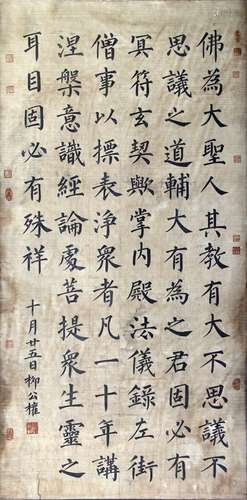 佛為大聖人其教有大不思議不
思議之道輔大有為之君固必有
冥符玄契歟掌内殿法儀錄左街
僧事以摽表淨衆者凡一十年講
涅槃意識經論處菩提衆生靈之
耳目固必有殊祥
十月廿五日柳公權